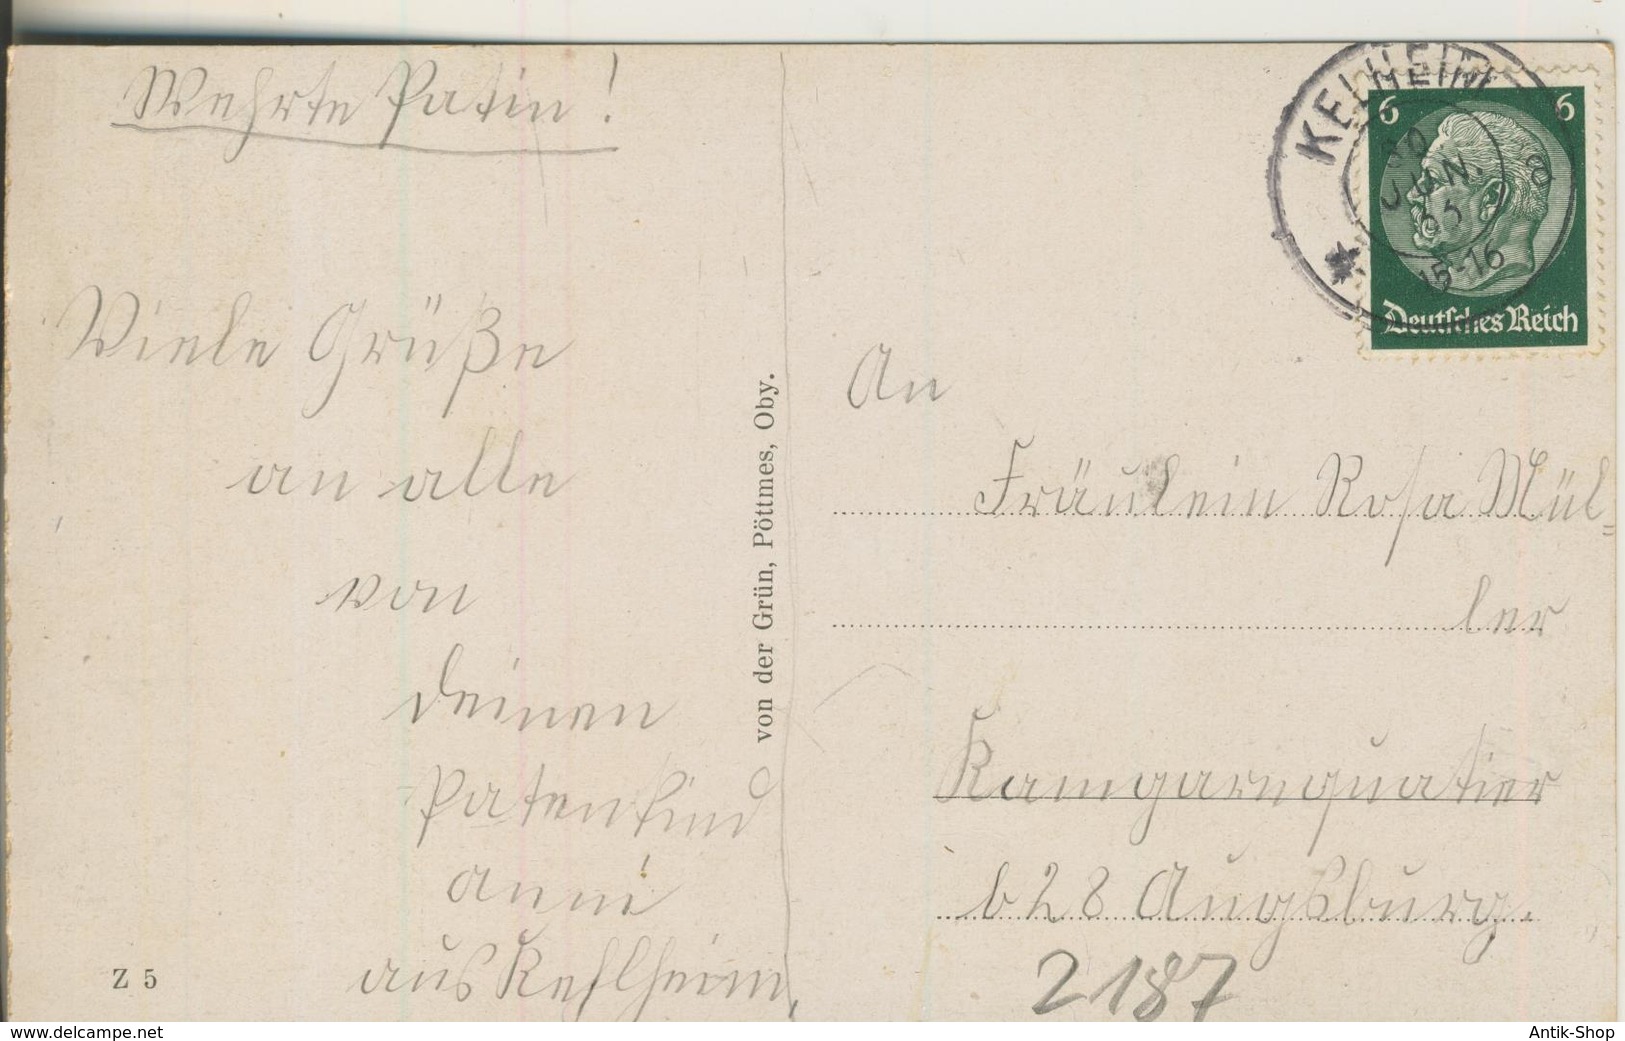 Wehrte Patin!
Viele Grüße
an alle
von
deinen
Patenkind
anni
aus Kehlheim.
Z 5
von der Grün, Pöttmes, Oby.
KELHEIM
JUN.
15-16
a
6 6
Deutsches Reich
An
Fräulein Rosa Mül=
ler
Kamgarnquatier
b 28 Augsburg.
2187
www.delcampe.net
Antik-Shop